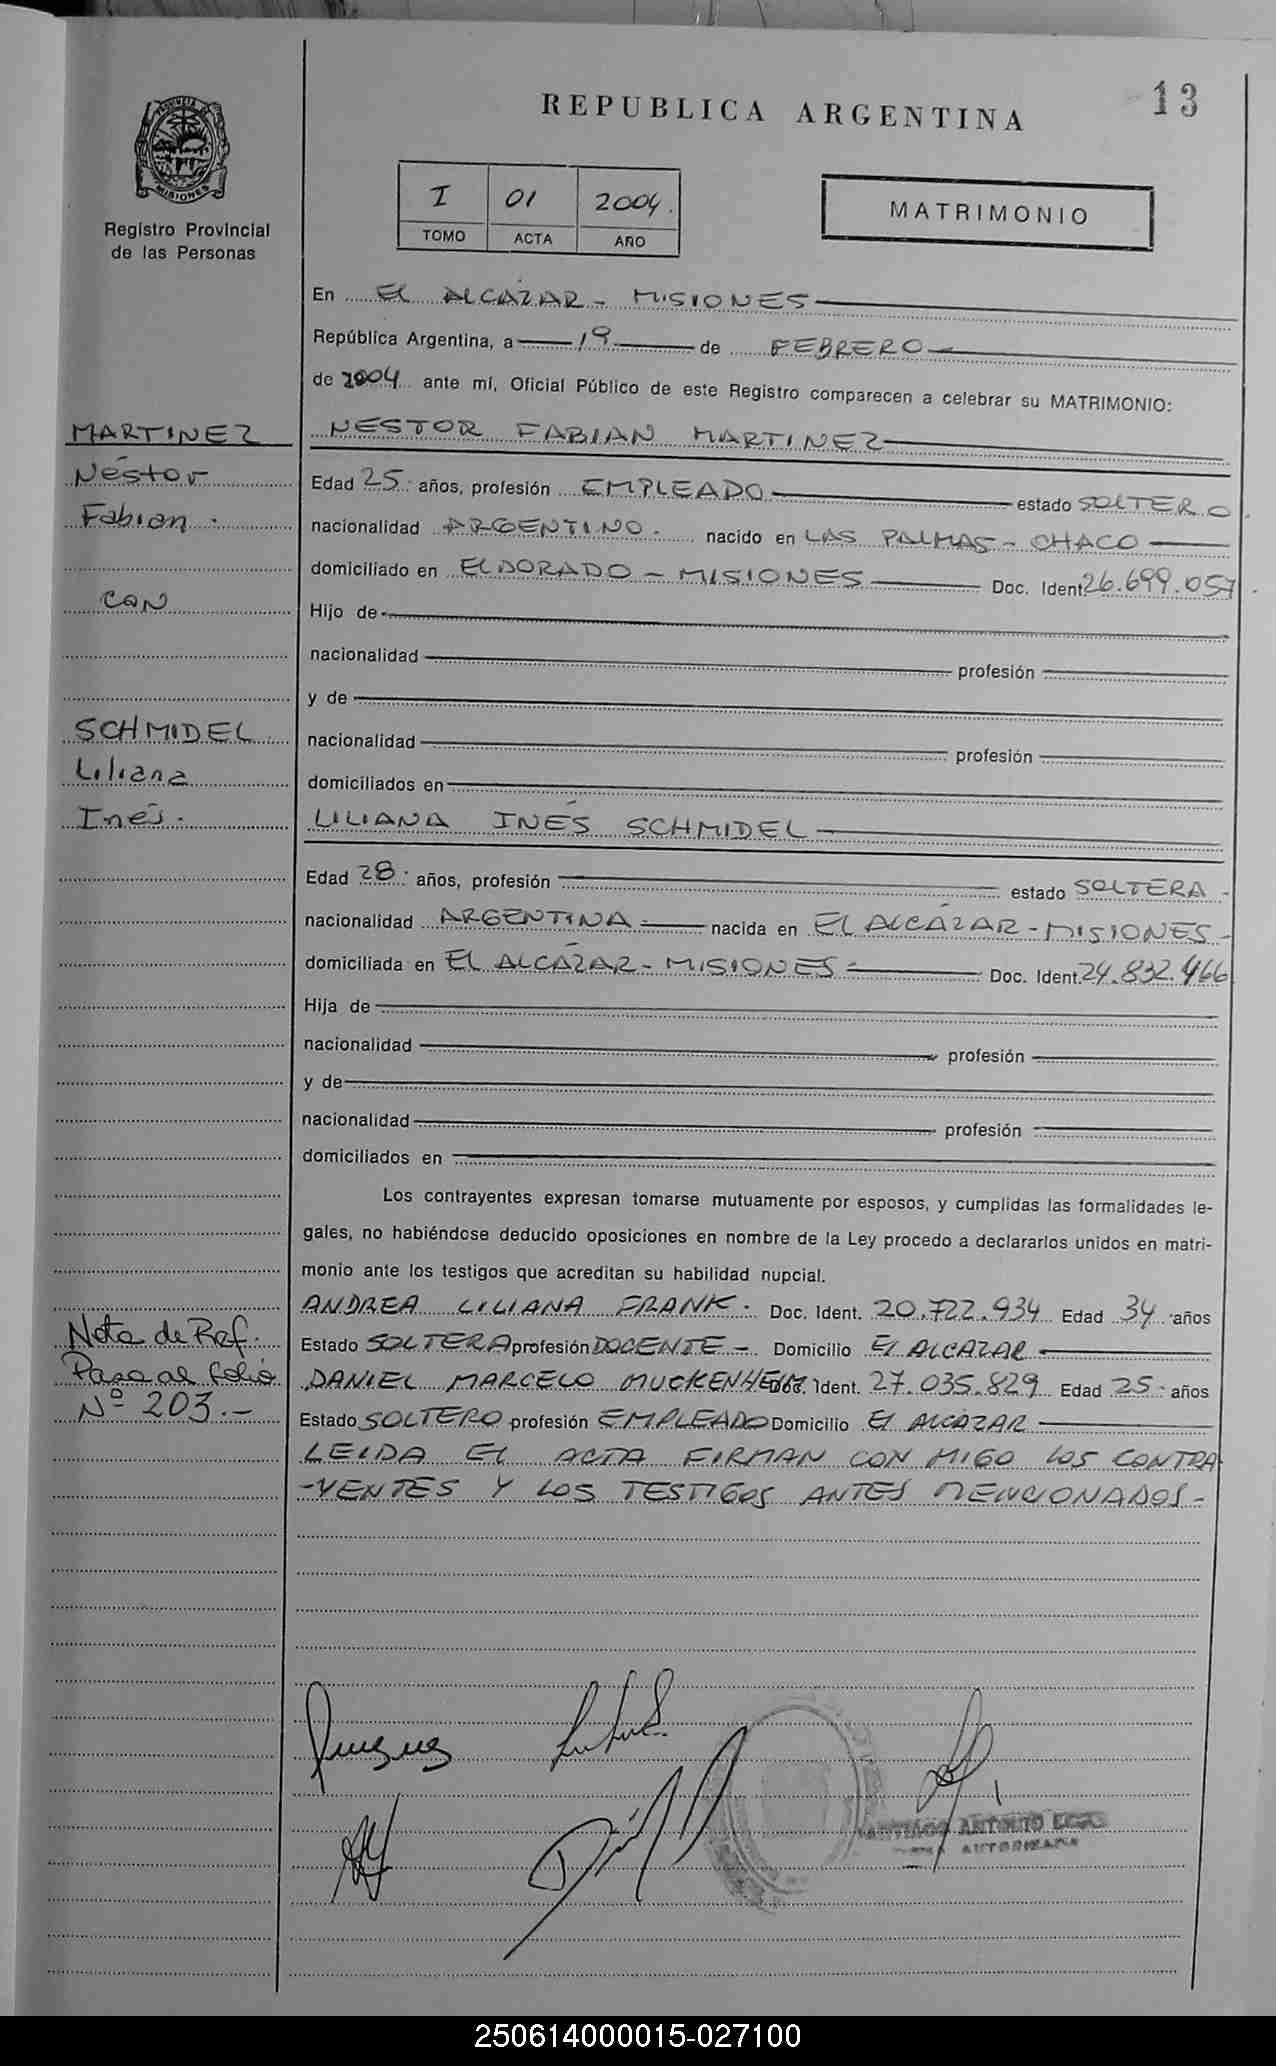 13
REPUBLICA ARGENTINA
PROVINCIA DE
MISIONES
Registro Provincial
de las Personas
I 01 2004.
TOMO ACTA AÑO
MATRIMONIO
En EL ALCÁZAR - MISIONES
República Argentina, a 19 de FEBRERO
de 2004 ante mí, Oficial Público de este Registro comparecen a celebrar su MATRIMONIO:
MARTINEZ
Néstor
Fabian.
CON
SCHMIDEL
Liliana
Inés.
NESTOR FABIAN MARTINEZ
Edad 25. años, profesión EMPLEADO estado SOLTERO.
nacionalidad ARGENTINO. nacido en LAS PALMAS - CHACO
domiciliado en ELDORADO - MISIONES Doc. Ident. 26.699.057.
Hijo de
nacionalidad profesión
y de
nacionalidad profesión
domiciliados en
LILIANA INÉS SCHMIDEL
Edad 28. años, profesión estado SOLTERA -
nacionalidad ARGENTINA nacida en EL ALCÁZAR - MISIONES -
domiciliada en EL ALCÁZAR - MISIONES - Doc. Ident. 24.832.466
Hija de
nacionalidad profesión
y de
nacionalidad profesión
domiciliados en
Los contrayentes expresan tomarse mutuamente por esposos, y cumplidas las formalidades le-
gales, no habiéndose deducido oposiciones en nombre de la Ley procedo a declararlos unidos en matri-
monio ante los testigos que acreditan su habilidad nupcial.
ANDREA LILIANA FRANK. Doc. Ident. 20.722.934 Edad 34 años
Estado SOLTERA profesión DOCENTE -. Domicilio El ALCAZAR
DANIEL MARCELO MUCKENHEIM Doc. Ident. 27.035.829 Edad 25. años
Estado SOLTERO profesión EMPLEADO Domicilio El ALCAZAR
LEIDA EL ACTA FIRMAN CON MIGO LOS CONTRA
-YENTES Y LOS TESTIGOS ANTES MENCIONADOS-
Nota de Ref.
Pasa al folio
Nº 203.-
ANTONIO
AUTORIZADA
250614000015-027100